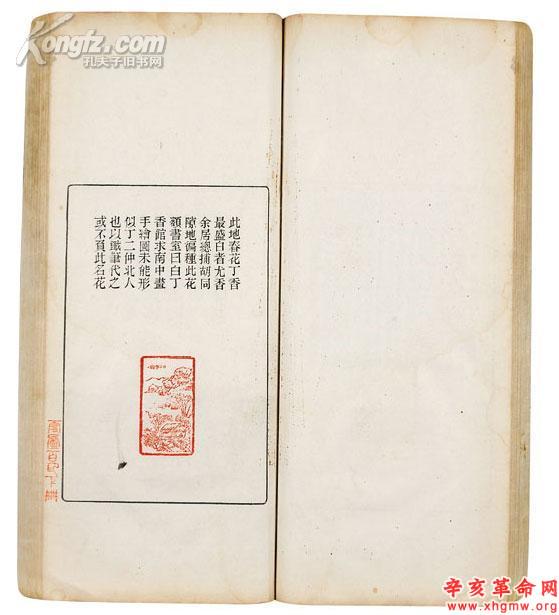 Kongfz.com
孔夫子旧书网
此地春花丁香
最盛白者尤香
余居總捕胡同
隙地徧種此花
額書室曰白丁
香館求南中畫
手繪圖未能形
似丁二仲北人
也以鐵筆代之
或不負此名花
百
下冊
辛亥革命网
www.xhgmw.org